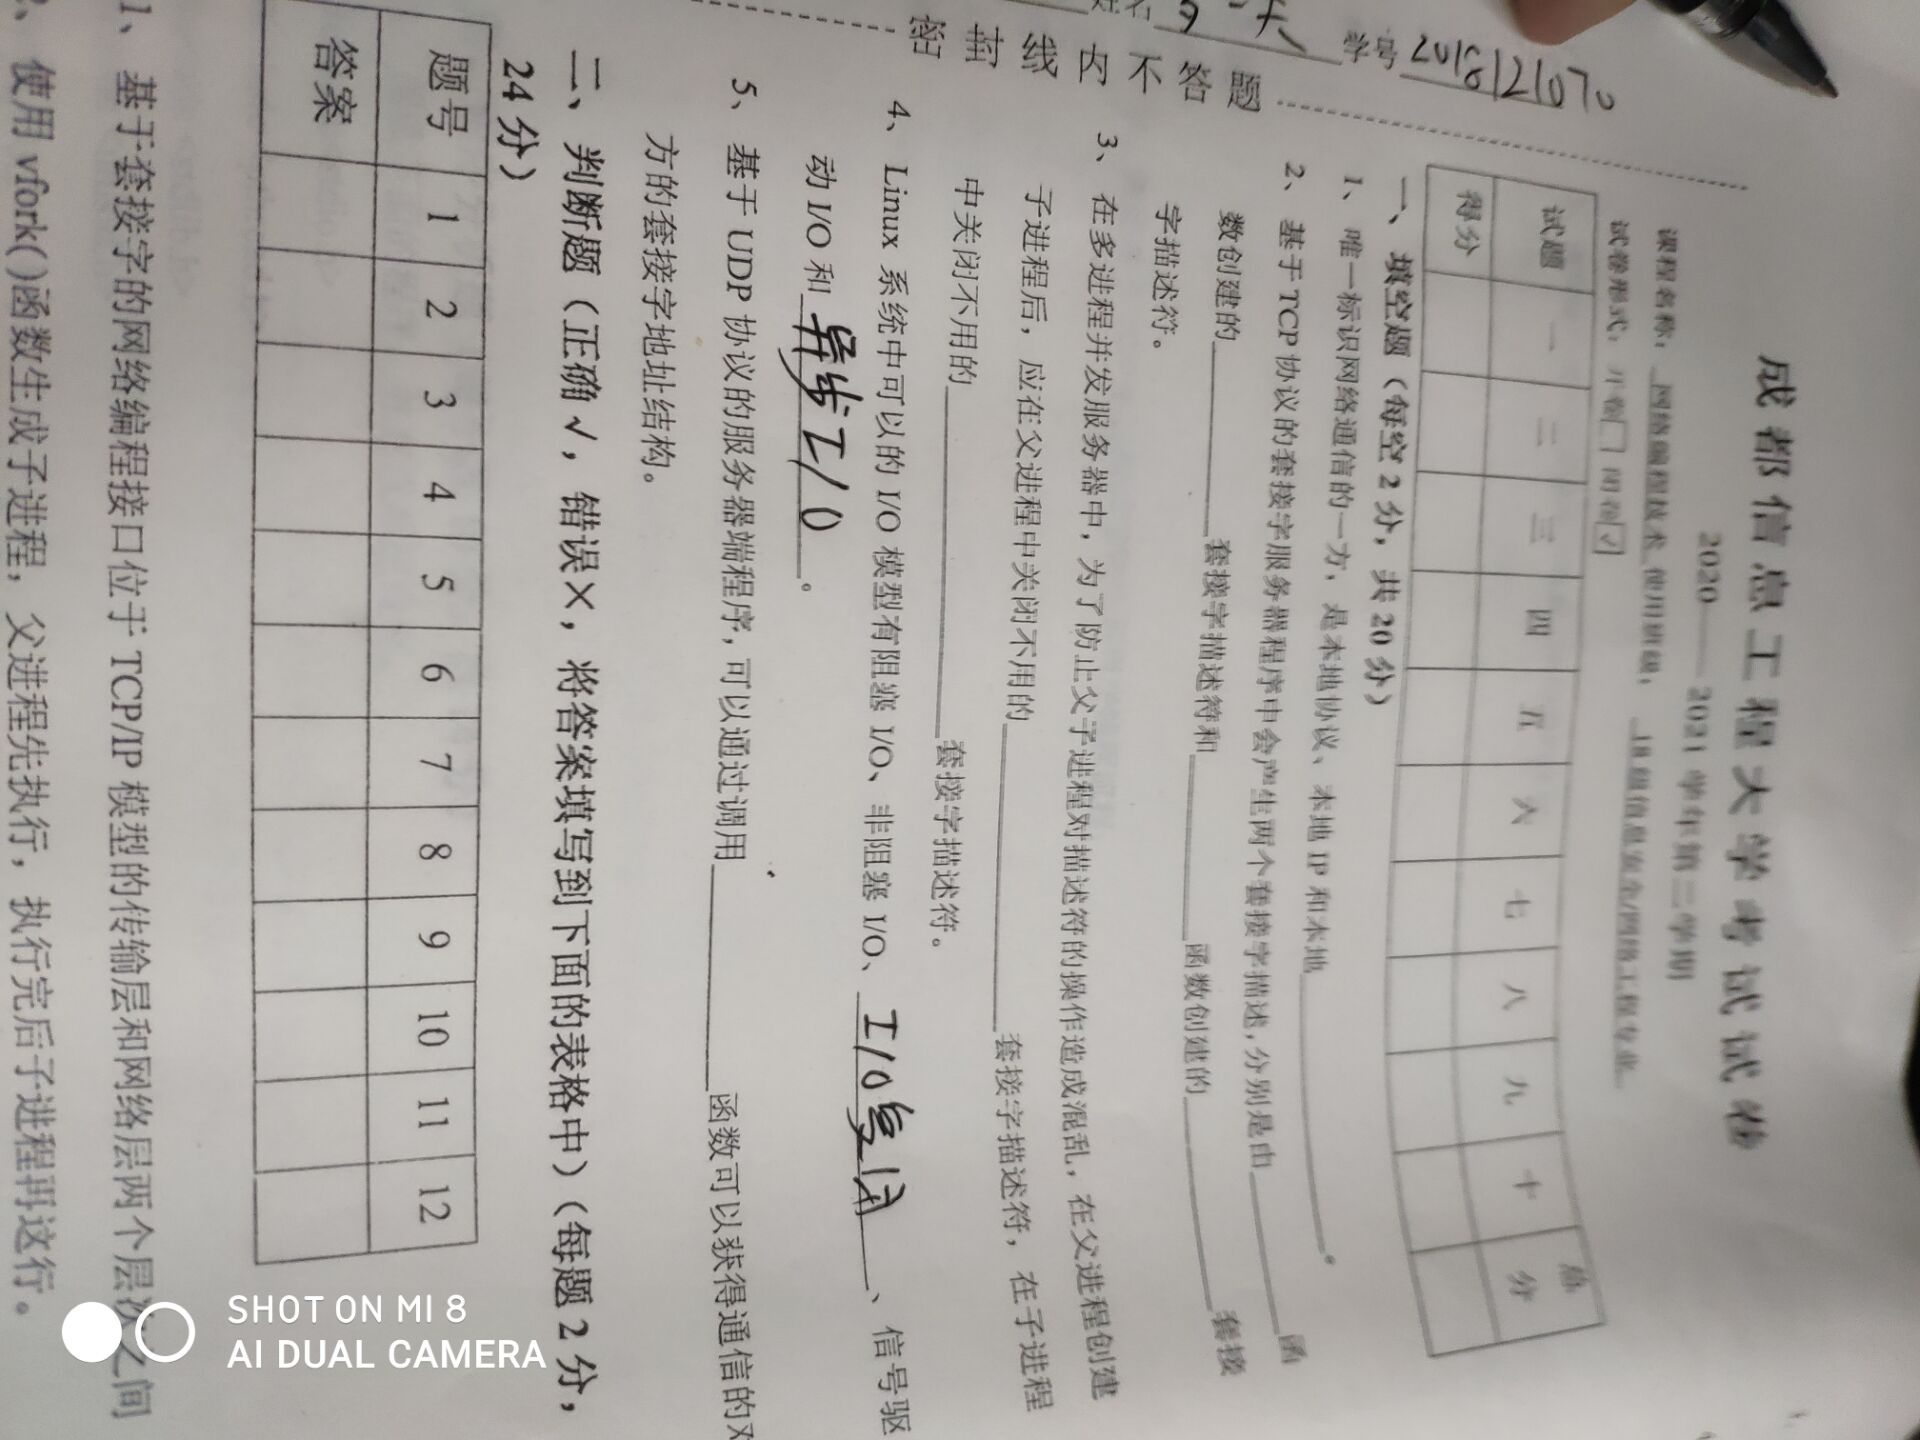 成都信息工程大学考试试卷
2020——2021学年第二学期
课程名称：网络编程技术 使用班级：18级信息安全/网络工程专业
试卷形式：开卷□ 闭卷☑
试题 一 二 三 四 五 六 七 八 九 十 总分
得分
一、填空题（每空2分，共20分）
1、唯一标识网络通信的一方，是本地协议、本地IP和本地______。
2、基于TCP协议的套接字服务器程序中会产生两个套接字描述,分别是由______函
数创建的______套接字描述符和______函数创建的______套接
字描述符。
3、在多进程并发服务器中，为了防止父子进程对描述符的操作造成混乱，在父进程创建
子进程后，应在父进程中关闭不用的______套接字描述符，在子进程
中关闭不用的______套接字描述符。
4、Linux 系统中可以的 I/O 模型有阻塞 I/O、非阻塞 I/O、I/O复用、信号驱
动 I/O 和异步I/O。
5、基于 UDP 协议的服务器端程序，可以通过调用______函数可以获得通信的对
方的套接字地址结构。
二、判断题（正确√，错误×，将答案填写到下面的表格中）（每题2分，
24分）
题号 1 2 3 4 5 6 7 8 9 10 11 12
答案
1、基于套接字的网络编程接口位于 TCP/IP 模型的传输层和网络层两个层次之间
使用 vfork()函数生成子进程，父进程先执行，执行完后子进程再这行。
学号
姓名
密封线内不答题
SHOT ON MI 8
AI DUAL CAMERA